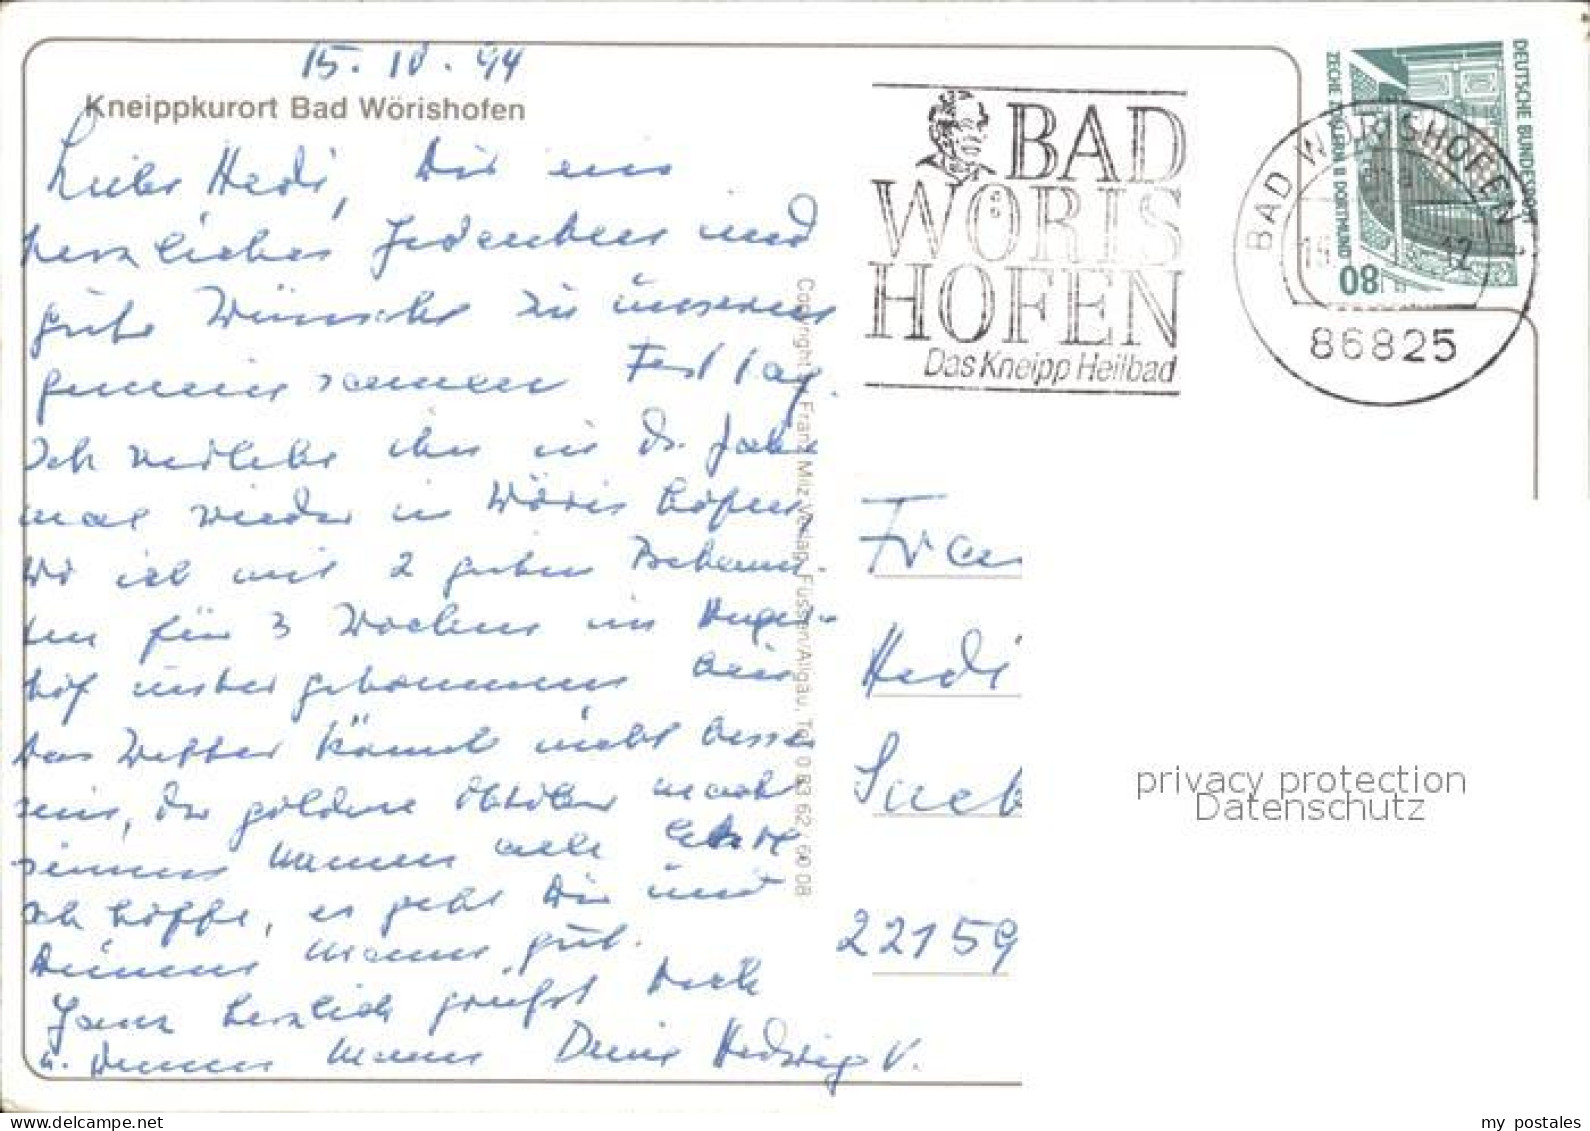 15.10.94
Kneippkurort Bad Wörishofen
Liebe Hedi, Dir ein
herzliches Gedenken und
gute Wünsche zu unserem
gemeinsamen Festtag.
Ich verlebe ihn in ds. Jahr
mal wieder in Wörishofen,
wo ich mit 2 guten Bekann-
ten für 3 Wochen im
hof untergekommen bin
Das Wetter könnte nicht besser
sein, der goldene Oktober macht
seinem Namen alle Ehre
Ich hoffe, es geht Dir und
Deinem Manne gut.
Ganz herzlich grüßt Dich
u. Deinen Mann Deine Hedwig V.
Copyright Franz Milz Verlag, Füssen/Allgäu, Tel. 0 83 62 / 60 08
BAD
WÖRIS
HOFEN
Das Kneipp Heilbad
BAD WÖRISHOFEN 1
86825
DEUTSCHE BUNDESPOST
ZECHE ZOLLERN II DORTMUND
80
Frau
Hedi
22159
privacy protection
Datenschutz
my postales
delcampe.net